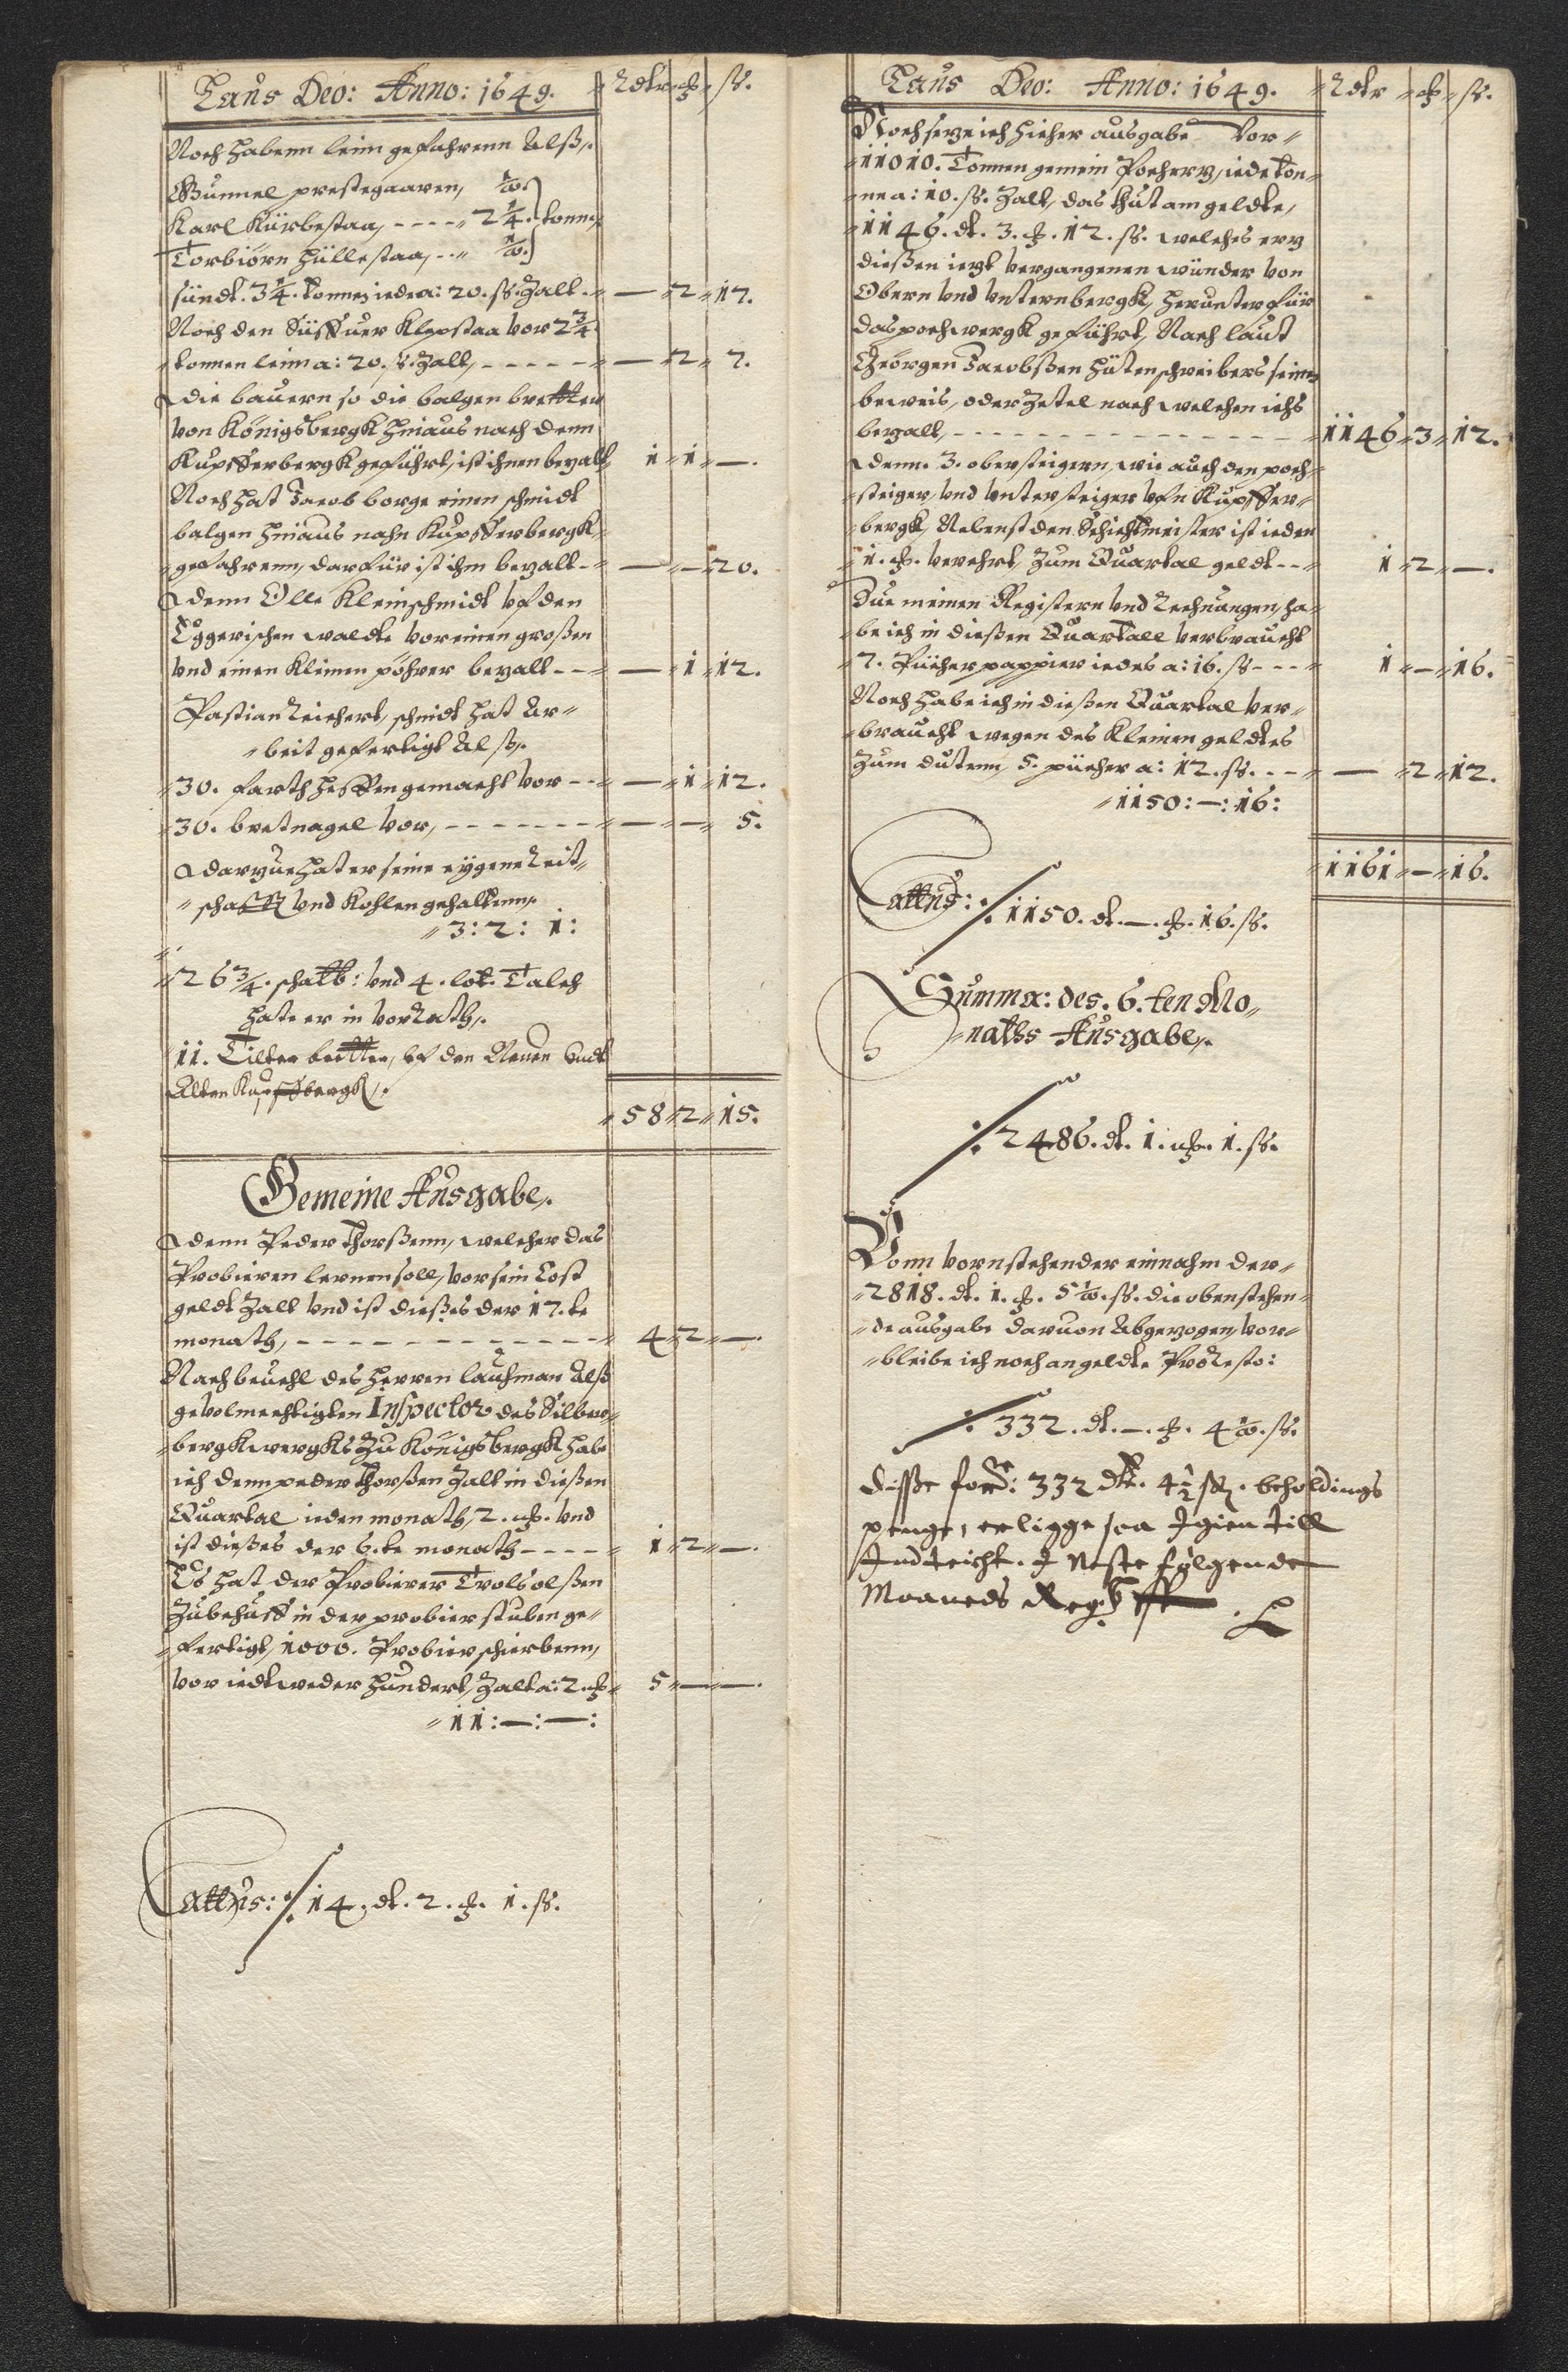 Laus Deo: Anno: 1649. Rdtr ß.
Noch habenn leim gefahrenn Alß,.
Gunnel prestegaaren, ½.
Karl Kürbestaa, - - - - 2¼. tonne,
Torbiörn Hüllestaa, - - ½.
sündt. 3¼. tonne, iede a: 20. ß. Zalt - — 2 17.
Noch den Süffuer Klepstaa vor 2¾
tonnen leim a: 20. ß. Zalt, - - - - - — 2 7.
die bauern so die balgen bretter
von Königsbergk hinaus nach denn
Kupfferbergk geführt, ist ihnen bezalt, 1 1 —.
Noch hat Jacob borge einen schmidt
balgen hinaus nahn Kupfferbergk,
gefahrenn, darfür ist ihm bezalt - — — 20.
denn Olle Kleinschmidt vf den
Eggerischen walde vor einen großen
vnd einen Kleinen pöhrer bezalt - - — 1 12.
Pastian Reichert, schmidt hat Ar-
beit gefertigt Alß,.
30. farth heffen gemacht vor - - — 1 12.
30. bretnagel vor, - - - - - - - — — 5.
darzue hat er seine eÿgene Zeit-
schafft vnd Kohlen gehaltenn,.
3: 2: 1:
26¾. schalb: vnd 4. lot. Talch
hate er in vorrath,.
11. Tilter bretter, vf den Neuen vndt
Alten Kupffbergk,.
58 2 15.
Gemeine Ausgabe,.
denn Peder Thorßenn, welcher das
Probieren lernen soll, vor sein Cost
geldt Zalt vnd ist dießes der 17. te
monath, - - - - - - - - - - - - 4 2 —.
Nach beuehl des Herren lauhman Alß
gevolmechtigten Inspector des Silber-
bergkwergks Zu Königsbergk habe
ich denn peder Thorßen Zalt in dießen
Quartal ieden monath, 2. vnd
ist dießes der 6. te monath - - - - 1 2 —.
Es hat der Probierer Trolß olßen
Zubehuff in der probier stuben ge-
fertigt, 1000. Probier schierbenn,
vor iedtweder hundert, Zalt a: 2. 5 — —.
11: —: —:
Lattus: ./. 14. dt. 2. 1. ß.
Laus Deo: Anno: 1649. Rdtr ß.
Noch seze ich hieher ausgabe vor-
11010. Tonnen gemein Pocherz, iede ton-
ne a: 10. ß. Zalt, das thut am geldte,
1146. dt. 3. 12. ß. welches erz
dießen iezt vergangenen wünder von
Obern vnd vnternbergk, herunter für
das pochwergk geführt, Nach laut
Geörgen Jacobßen Hütenschreibers seinen
beweis, oder Zetel nach welchen ichs
bezalt, - - - - - - - - - - - - 1146 3 12.
denn. 3. obersteigern, wie auch den poch-
steiger, vnd vntersteiger vfn Kupffer-
bergk, Nebenst den Schichtmeister ist ieden
1. verehrt, Zum Quartal geldt - - 1 2 —.
Zue meinen Registern vnd Rechnungen, ha-
be ich in dießen Quartall verbraucht
7. Püicher pappier iedes a: 16. ß - - - 1 — 16.
Noch habe ich in dießen Quartal ver-
braucht wegen des Kleinen geldtes
Zum dutenn, 5. püicher a: 12. ß. - - - — 2 12.
1150: —: 16:
1161 — 16.
Lattus: ./. 1150. dt. —. 16. ß.
Summa: des. 6. ten Mo-
naths Ausgabe,.
./. 2486. dt. 1. 1. ß.
Vonn vornstehender einnahm der-
2818. dt. 1. 5½. ß. die obenstehen-
de ausgabe daruon Abgezogen, vor-
bleibe ich noch an geldte Pro Resto:
./. 332. dt. —. 4½. ß.
Disße ford: 332 dlr. 4½ ß. beholdings
penge, er ligge saa Igien till
Indteicht. I Neste følgende
Maaneds Reg: